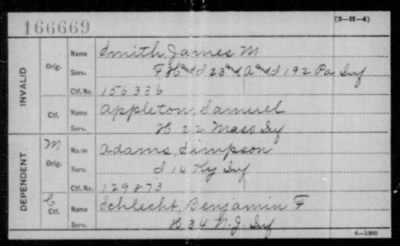 166669
(3—H—4)
INVALID
Orig.
Name Smith, James M
Serv. F 86" & 23" & A" & 192 Pa Inf
Ctf. No. 156336
Ctf.
Name Appleton, Samuel
Serv. K 22 Mass Inf
DEPENDENT
M Orig.
Name Adams, Simpson
Serv. I 14 Ky Inf
Ctf. No. 129873
C Ctf.
Name Schlecht, Benjamin F
Serv. K 34 N.J. Inf